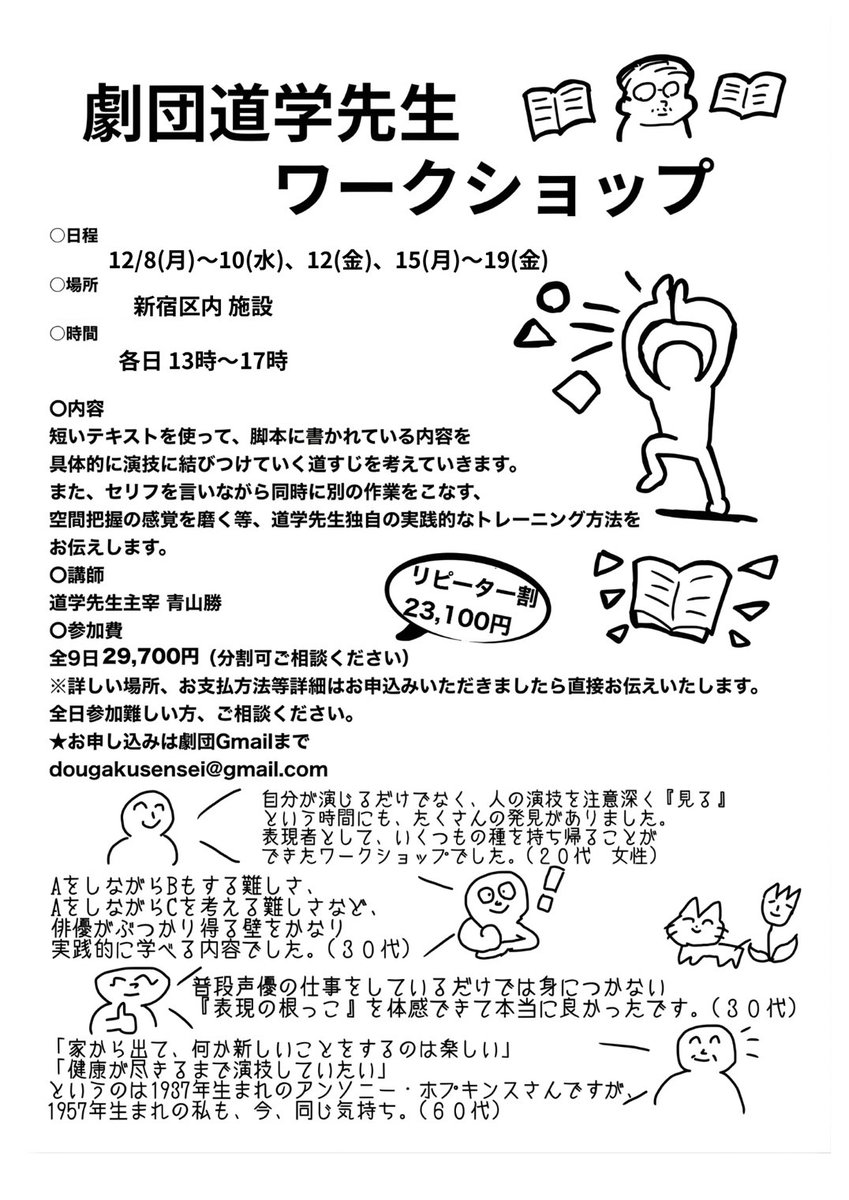 劇団道学先生
ワークショップ
○日程
12/8(月)〜10(水)、12(金)、15(月)〜19(金)
○場所
新宿区内 施設
○時間
各日 13時〜17時
〇内容
短いテキストを使って、脚本に書かれている内容を
具体的に演技に結びつけていく道すじを考えていきます。
また、セリフを言いながら同時に別の作業をこなす、
空間把握の感覚を磨く等、道学先生独自の実践的なトレーニング方法を
お伝えします。
〇講師
道学先生主宰 青山勝
〇参加費
リピーター割
23,100円
全9日 29,700円（分割可ご相談ください）
※詳しい場所、お支払方法等詳細はお申込みいただきましたら直接お伝えいたします。
全日参加難しい方、ご相談ください。
★お申し込みは劇団Gmailまで
dougakusensei@gmail.com
自分が演じるだけでなく、人の演技を注意深く『見る』
という時間にも、たくさんの発見がありました。
表現者として、いくつもの種を持ち帰ることが
できたワークショップでした。（２０代　女性）
AをしながらBもする難しさ、
AをしながらCを考える難しさなど、
俳優がぶつかり得る壁をかなり
実践的に学べる内容でした。（３０代）
普段声優の仕事をしているだけでは身につかない
『表現の根っこ』を体感できて本当に良かったです。（３０代）
「家から出て、何か新しいことをするのは楽しい」
「健康が尽きるまで演技していたい」
というのは1937年生まれのアンソニー・ホプキンスさんですが、
1957年生まれの私も、今、同じ気持ち。（６０代）